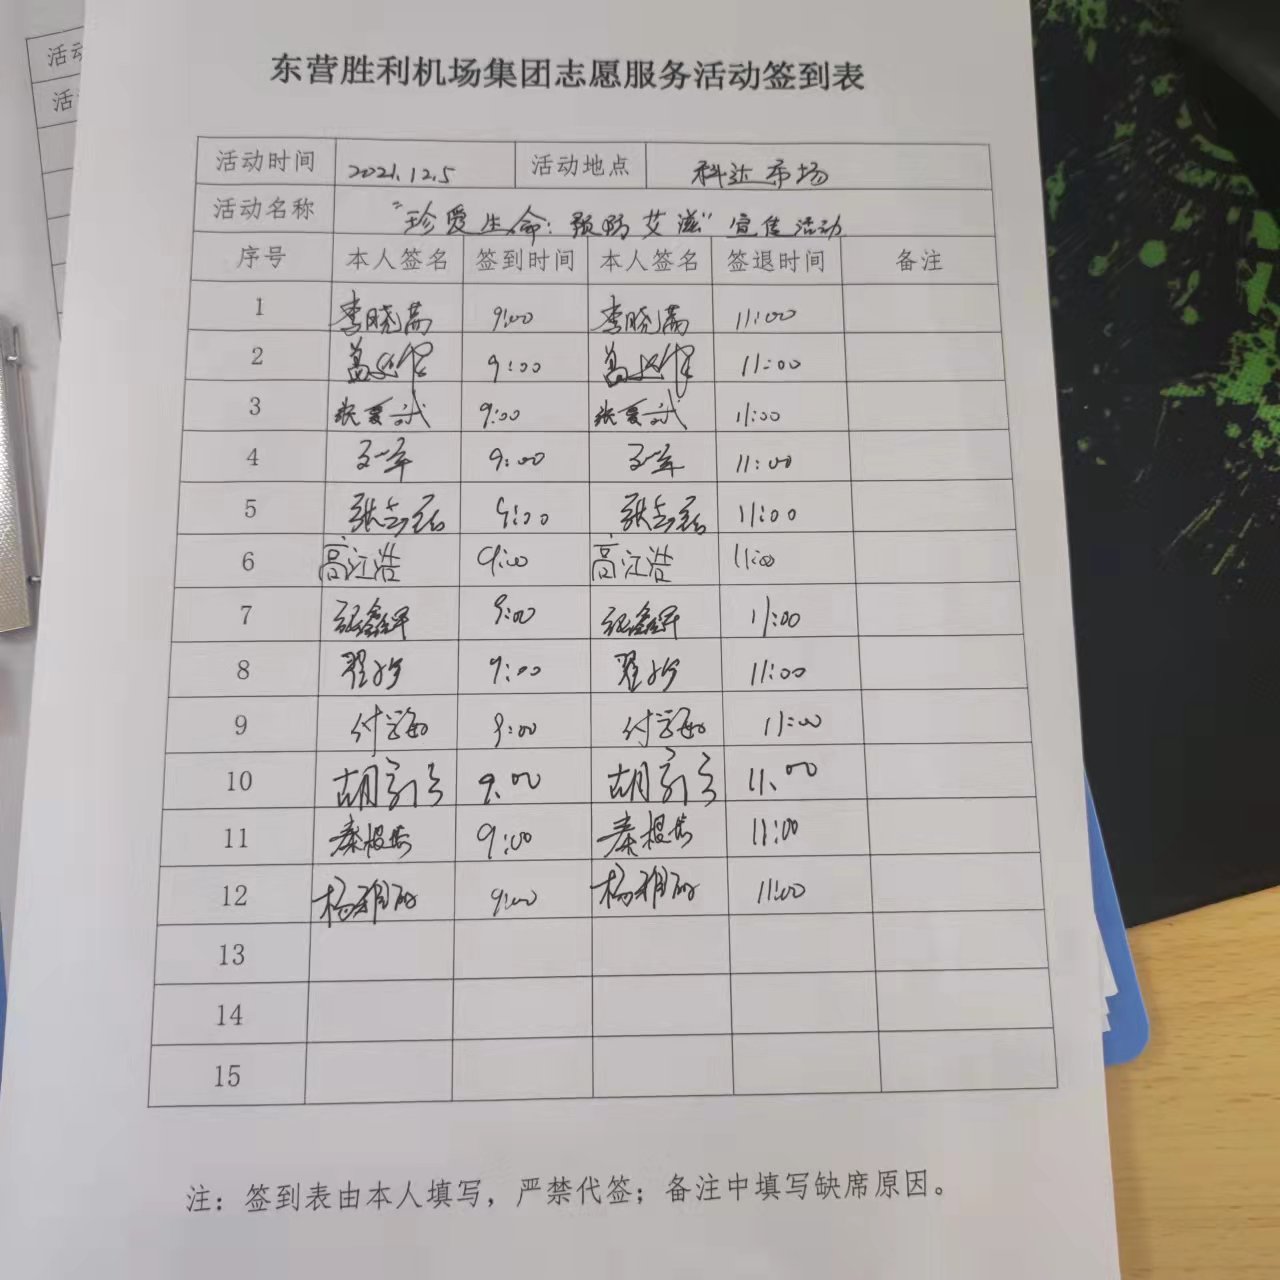 东营胜利机场集团志愿服务活动签到表
活动时间 2021.12.5 活动地点 科达市场
活动名称 "珍爱生命:预防艾滋"宣传活动
序号 本人签名 签到时间 本人签名 签退时间 备注
1 李晓蒿 9:00 李晓蒿 11:00
2 9:00 11:00
3 张夏 9:00 张夏 11:00
4 9:00 11:00
5 张 9:00 张 11:00
6 高江浩 9:00 高江浩 11:00
7 鑫 9:00 鑫 11:00
8 翟 9:00 翟 11:00
9 付海 9:00 付海 11:00
10 胡 9:00 胡 11:00
11 秦 9:00 秦 11:00
12 杨雅 9:00 杨雅 11:00
13
14
15
注:签到表由本人填写,严禁代签;备注中填写缺席原因。
活动
活